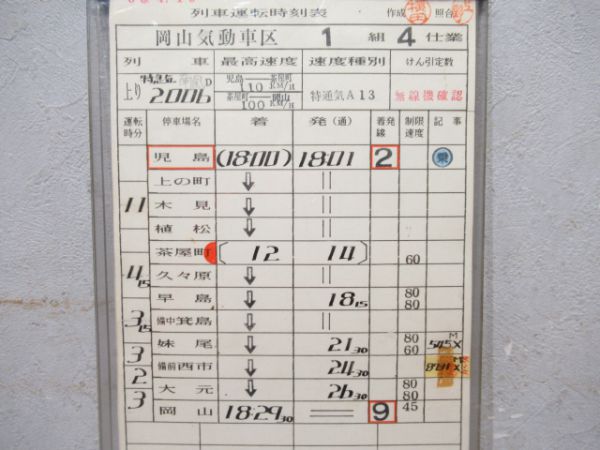 列車運転時刻表 作成 照合
岡山気動車区 1 組 4 仕業
列車 最高速度 速度種別 けん引定数
上り 2006D 児島—茶屋町 110KM/H 茶屋町—岡山 100KM/H 特通気A13 無線機確認
運転時分 停車場名 着 発(通) 着発線 制限速度 記事
児島 (18:00) 18:01 2 乗
上の町 ↓ ||
11 木見 ↓ ||
植松 ↓ ||
茶屋町 〔 12 14 〕 60
4 15 久々原 ↓ ||
早島 ↓ 18 15 80 80
3 15 備中箕島 ↓ ||
3 妹尾 ↓ 21 30 80 60 545M X
2 備前西市 ↓ 24 30
3 大元 ↓ 26 30 80 80
岡山 18:29 30 = 9 45